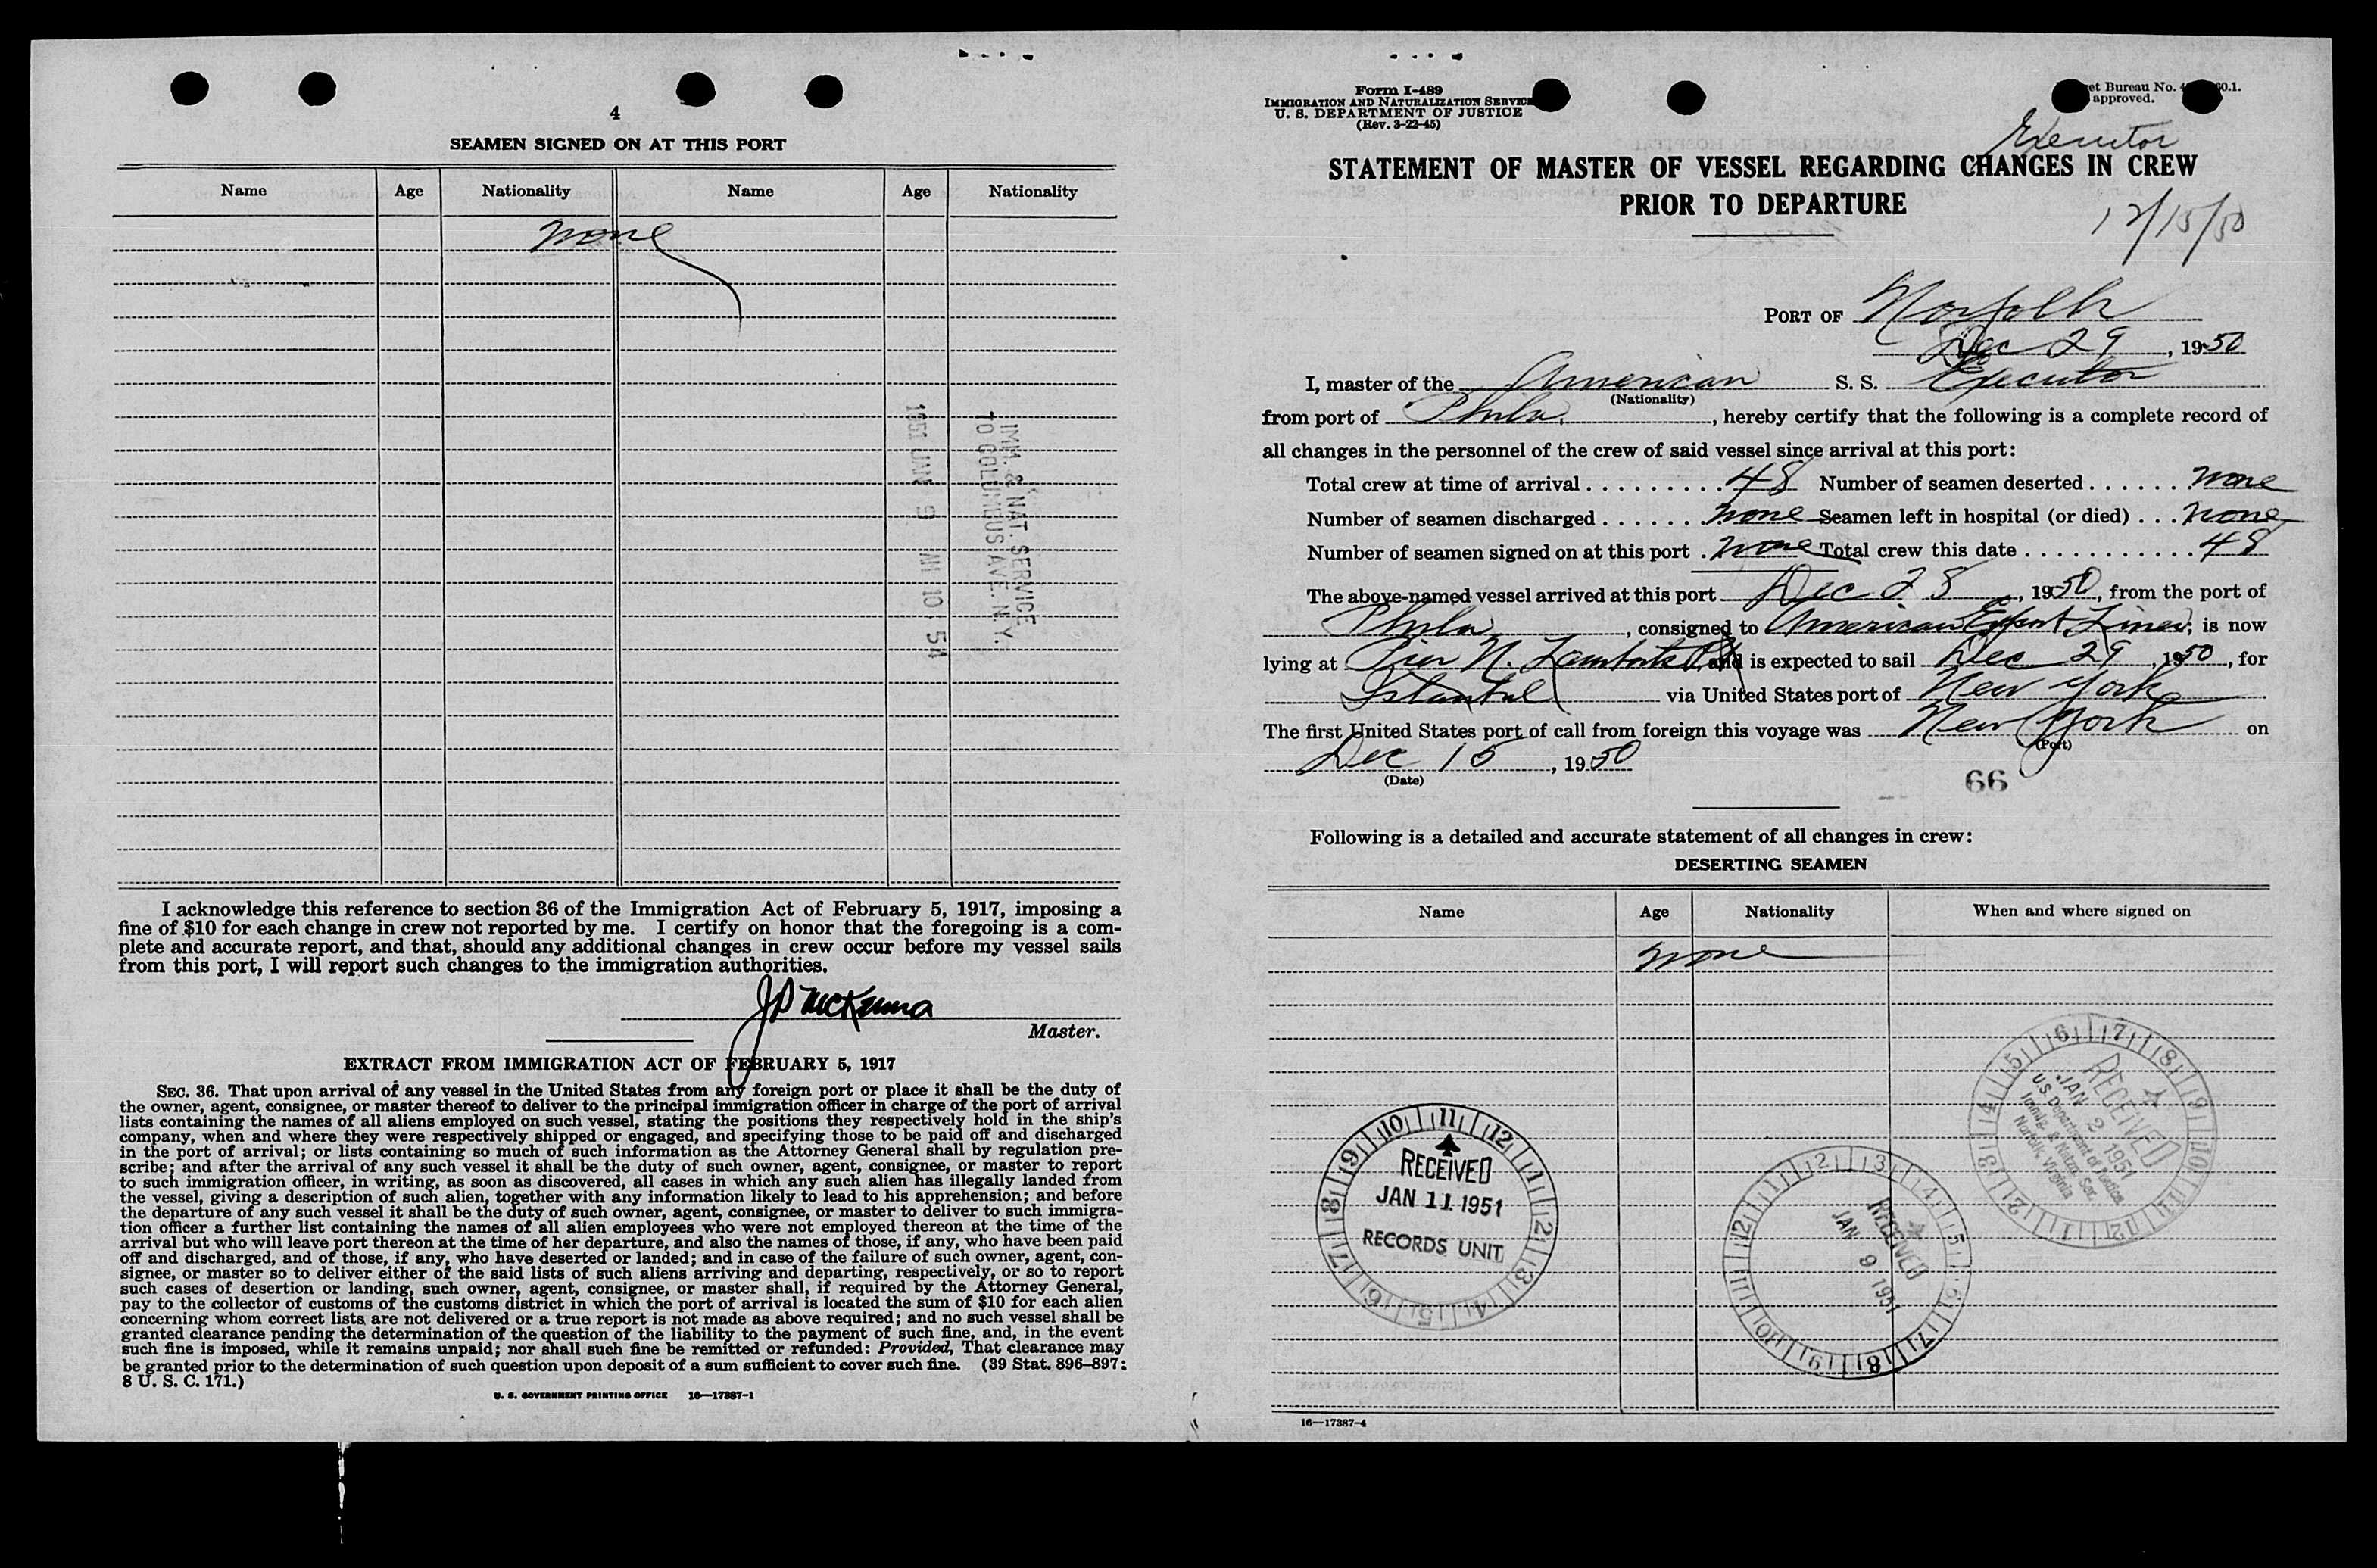 4
SEAMEN SIGNED ON AT THIS PORT
Name Age Nationality Name Age Nationality
none
IMM. & NAT. SERVICE
70 COLUMBUS AVE. N.Y.
1951 JAN 9 AM 10 54
I acknowledge this reference to section 36 of the Immigration Act of February 5, 1917, imposing a
fine of $10 for each change in crew not reported by me. I certify on honor that the foregoing is a com-
plete and accurate report, and that, should any additional changes in crew occur before my vessel sails
from this port, I will report such changes to the immigration authorities.
J D McKenna
Master.
EXTRACT FROM IMMIGRATION ACT OF FEBRUARY 5, 1917
SEC. 36. That upon arrival of any vessel in the United States from any foreign port or place it shall be the duty of
the owner, agent, consignee, or master thereof to deliver to the principal immigration officer in charge of the port of arrival
lists containing the names of all aliens employed on such vessel, stating the positions they respectively hold in the ship's
company, when and where they were respectively shipped or engaged, and specifying those to be paid off and discharged
in the port of arrival; or lists containing so much of such information as the Attorney General shall by regulation pre-
scribe; and after the arrival of any such vessel it shall be the duty of such owner, agent, consignee, or master to report
to such immigration officer, in writing, as soon as discovered, all cases in which any such alien has illegally landed from
the vessel, giving a description of such alien, together with any information likely to lead to his apprehension; and before
the departure of any such vessel it shall be the duty of such owner, agent, consignee, or master to deliver to such immigra-
tion officer a further list containing the names of all alien employees who were not employed thereon at the time of the
arrival but who will leave port thereon at the time of her departure, and also the names of those, if any, who have been paid
off and discharged, and of those, if any, who have deserted or landed; and in case of the failure of such owner, agent, con-
signee, or master so to deliver either of the said lists of such aliens arriving and departing, respectively, or so to report
such cases of desertion or landing, such owner, agent, consignee, or master shall, if required by the Attorney General,
pay to the collector of customs of the customs district in which the port of arrival is located the sum of $10 for each alien
concerning whom correct lists are not delivered or a true report is not made as above required; and no such vessel shall be
granted clearance pending the determination of the question of the liability to the payment of such fine, and, in the event
such fine is imposed, while it remains unpaid; nor shall such fine be remitted or refunded: Provided, That clearance may
be granted prior to the determination of such question upon deposit of a sum sufficient to cover such fine. (39 Stat. 896-897;
8 U. S. C. 171.)
U. S. GOVERNMENT PRINTING OFFICE 16—17387-1
Form I-489
IMMIGRATION AND NATURALIZATION SERVICE
U. S. DEPARTMENT OF JUSTICE
(Rev. 3-22-45)
Bureau No.
approved.
Executor
STATEMENT OF MASTER OF VESSEL REGARDING CHANGES IN CREW
PRIOR TO DEPARTURE
12/15/50
PORT OF Norfolk
Dec 29, 1950
I, master of the American S. S. Executor
(Nationality)
from port of Phila., hereby certify that the following is a complete record of
all changes in the personnel of the crew of said vessel since arrival at this port:
Total crew at time of arrival . . . . . . . . . 48 Number of seamen deserted . . . . . . none
Number of seamen discharged . . . . . . none Seamen left in hospital (or died) . . . none
Number of seamen signed on at this port . none Total crew this date . . . . . . . . . . . 48
The above-named vessel arrived at this port Dec 28, 1950, from the port of
Phila, consigned to American Export Lines; is now
lying at Pier N. Lamberts Pt, and is expected to sail Dec 29, 1950, for
Istanbul via United States port of New York
The first United States port of call from foreign this voyage was New York on
(Port)
Dec 15, 1950
(Date)
66
Following is a detailed and accurate statement of all changes in crew:
DESERTING SEAMEN
Name Age Nationality When and where signed on
none
RECEIVED
JAN 2 1951
U.S. Department of Justice
Immig. & Natzn. Ser.
Norfolk, Virginia
RECEIVED
JAN 11 1951
RECORDS UNIT
RECEIVED
JAN 9 1951
16—17387-4